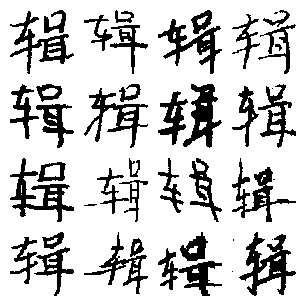 辑辑辑辑
辑辑辑辑
辑辑辑辑
辑辑辑辑